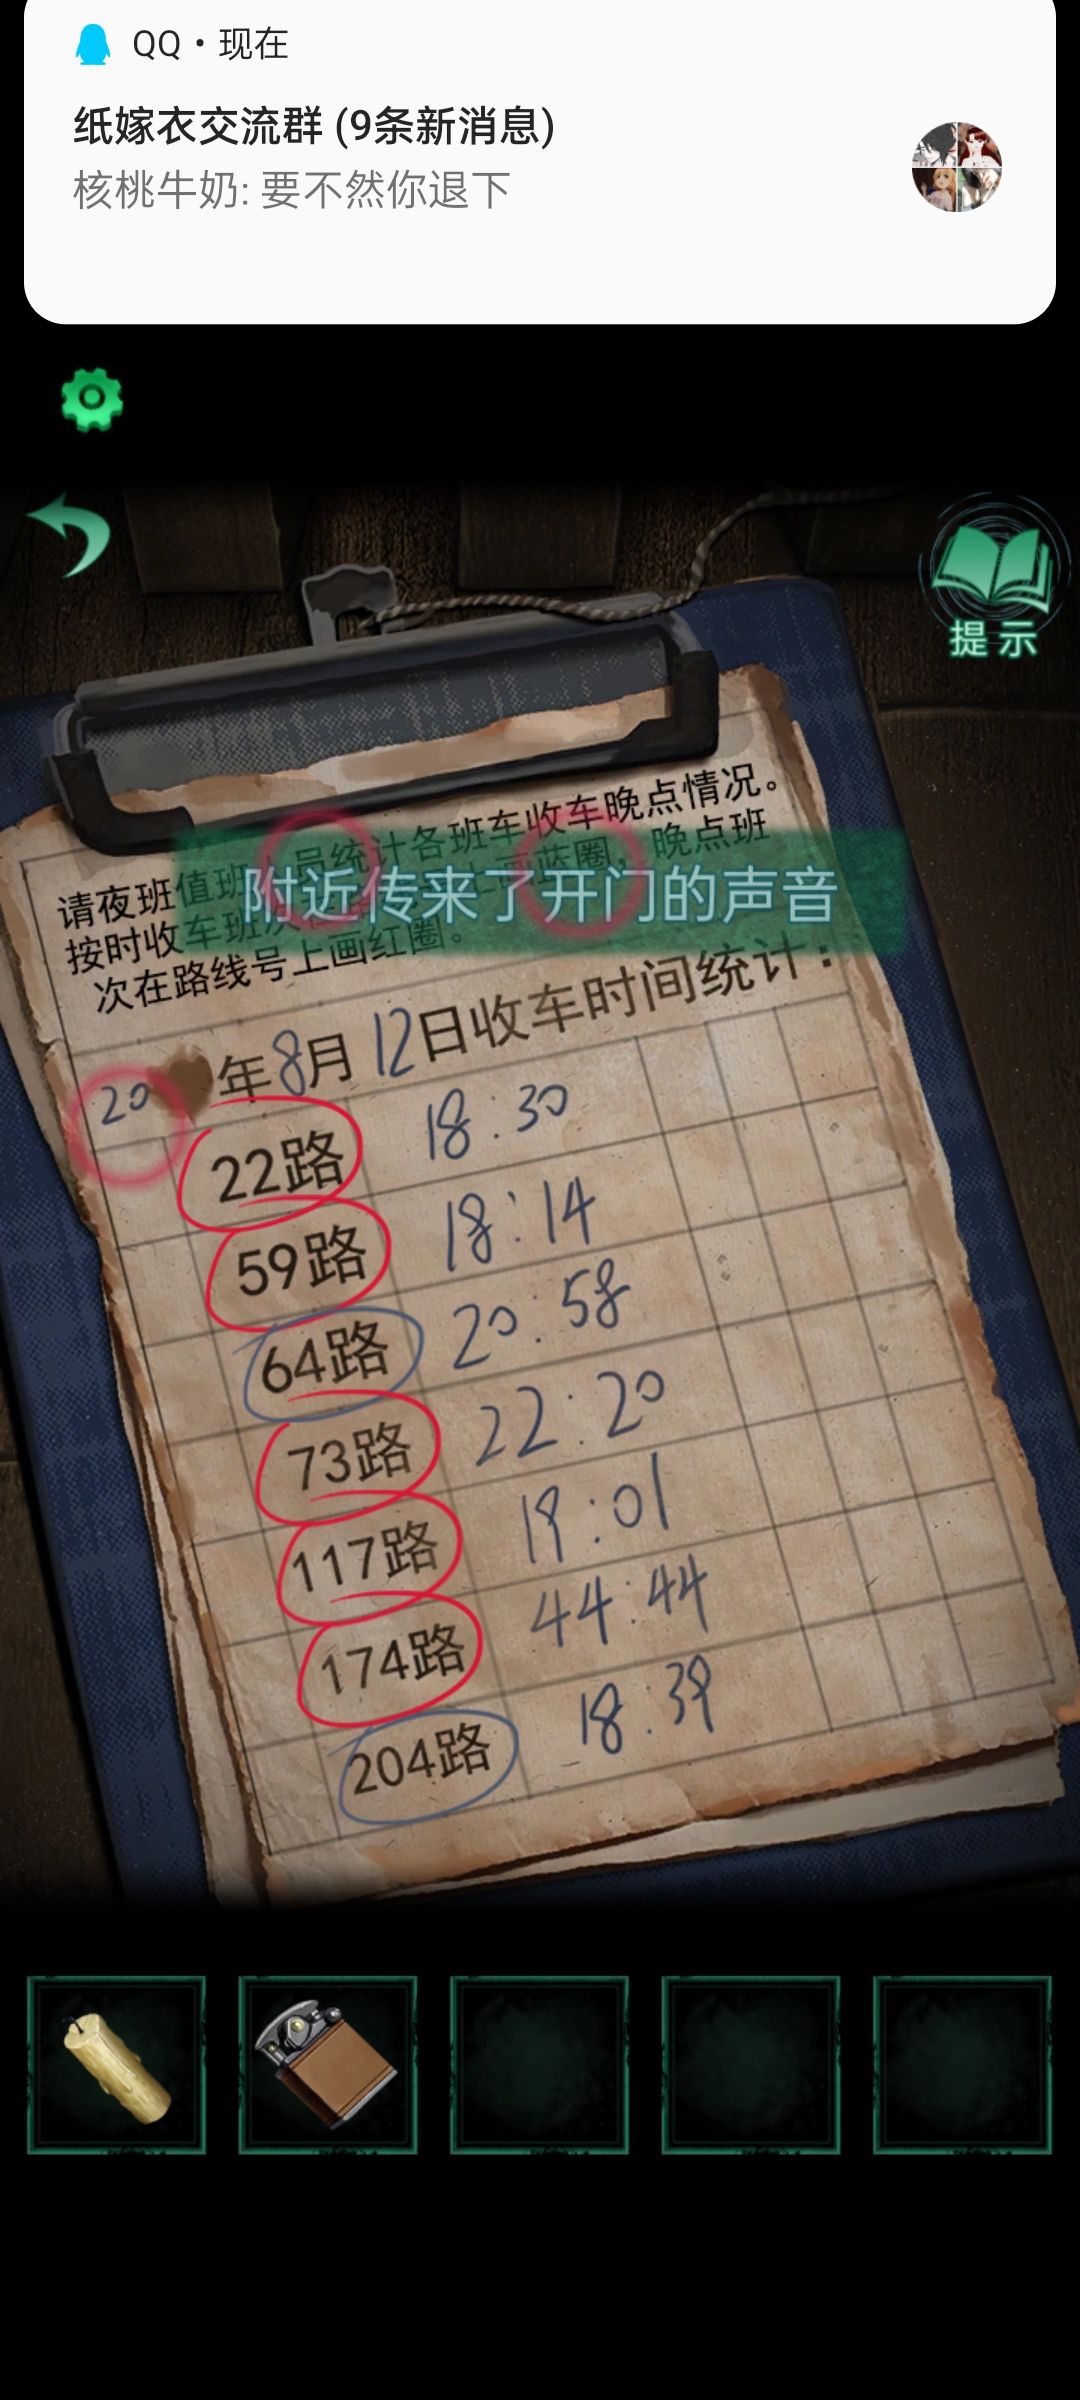 QQ • 现在
纸嫁衣交流群 (9条新消息)
核桃牛奶: 要不然你退下
提示
请夜班值班人员统计各班车收车晚点情况。
按时收车班次在路线号上画蓝圈，晚点班
次在路线号上画红圈。
附近传来了开门的声音
20 年8月12日收车时间统计：
22路 18:30
59路 18:14
64路 20:58
73路 22:20
117路 19:01
174路 44:44
204路 18:39